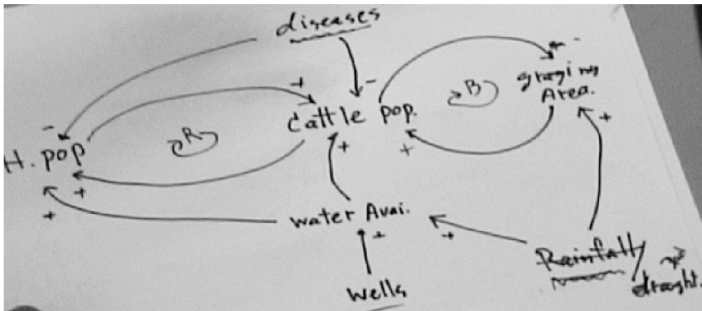 diseases
+
-
-
Cattle pop.
-
B
grazing
Area.
H. pop
R
+
+
+
+
+
water Avai.
+
+
Wells
Rainfall/
draught.